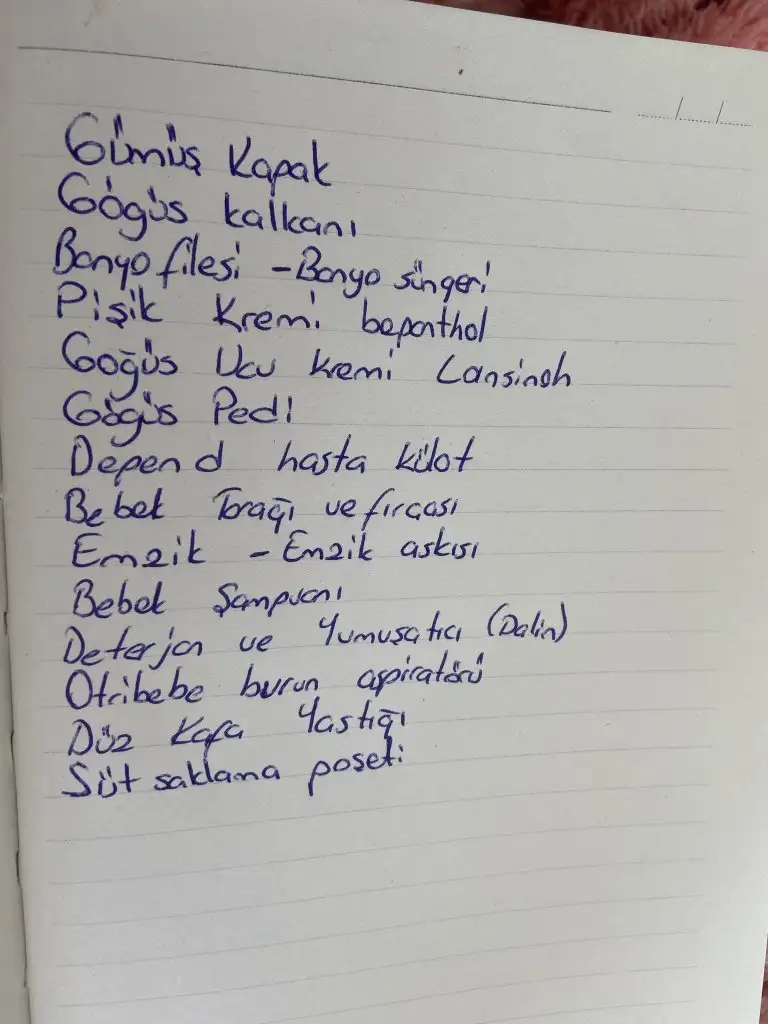 Gümüş Kapak
Göğüs kalkanı
Banyo filesi - Banyo süngeri
Pişik Kremi bepanthol
Göğüs Ucu kremi Lansinoh
Göğüs Pedi
Depend hasta külot
Bebek Tarağı ve fırçası
Emzik - Emzik askısı
Bebek Şampuanı
Deterjan ve Yumuşatıcı (Dalin)
Otribebe burun aspiratörü
Düz Kafa Yastığı
Süt saklama poseti